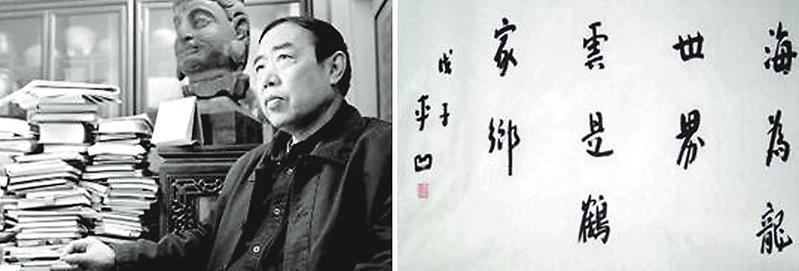 海為龍
世界
雲是鶴
家鄉
戊子
平凹